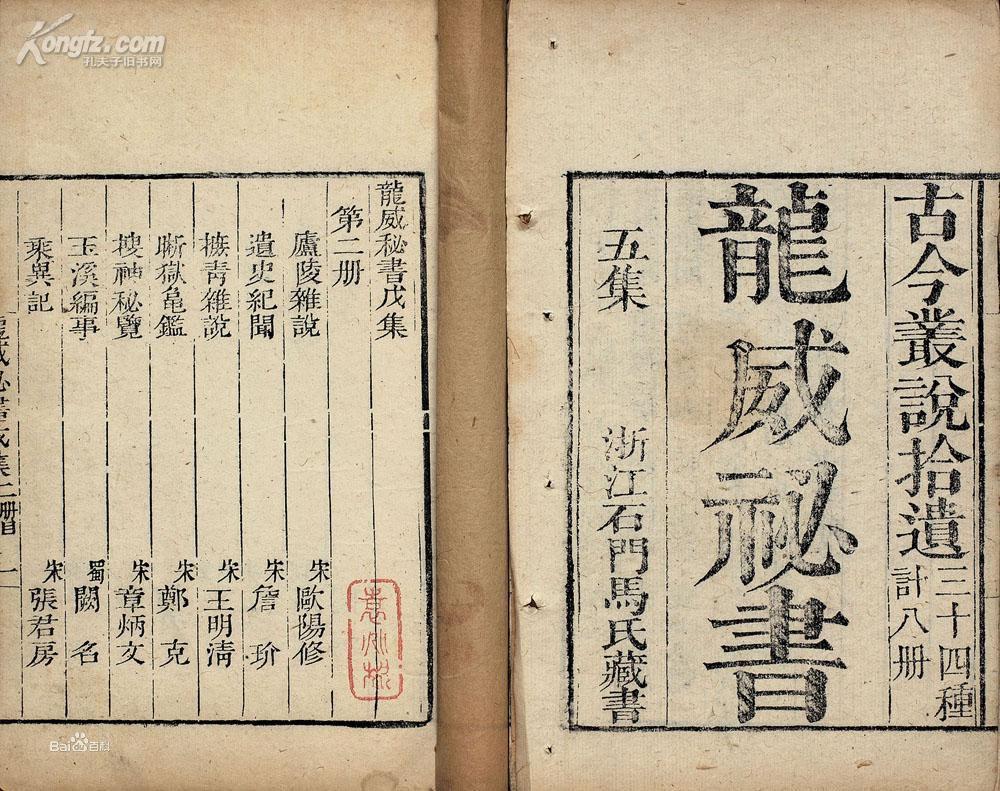 古今叢說拾遺三十四種
計八册
龍威祕書
五集
浙江石門馬氏藏書
龍威秘書戊集
第二册
廬陵雜說 宋歐陽修
遺史紀聞 宋詹玠
摭青雜説 宋王明淸
晣獄龜鑑 宋鄭克
搜神秘覽 宋章炳文
玉溪編事 蜀闕名
乘異記 宋張君房
龍威秘書戊集二册目 一
Kongfz.com
孔夫子旧书网
Baidu百科